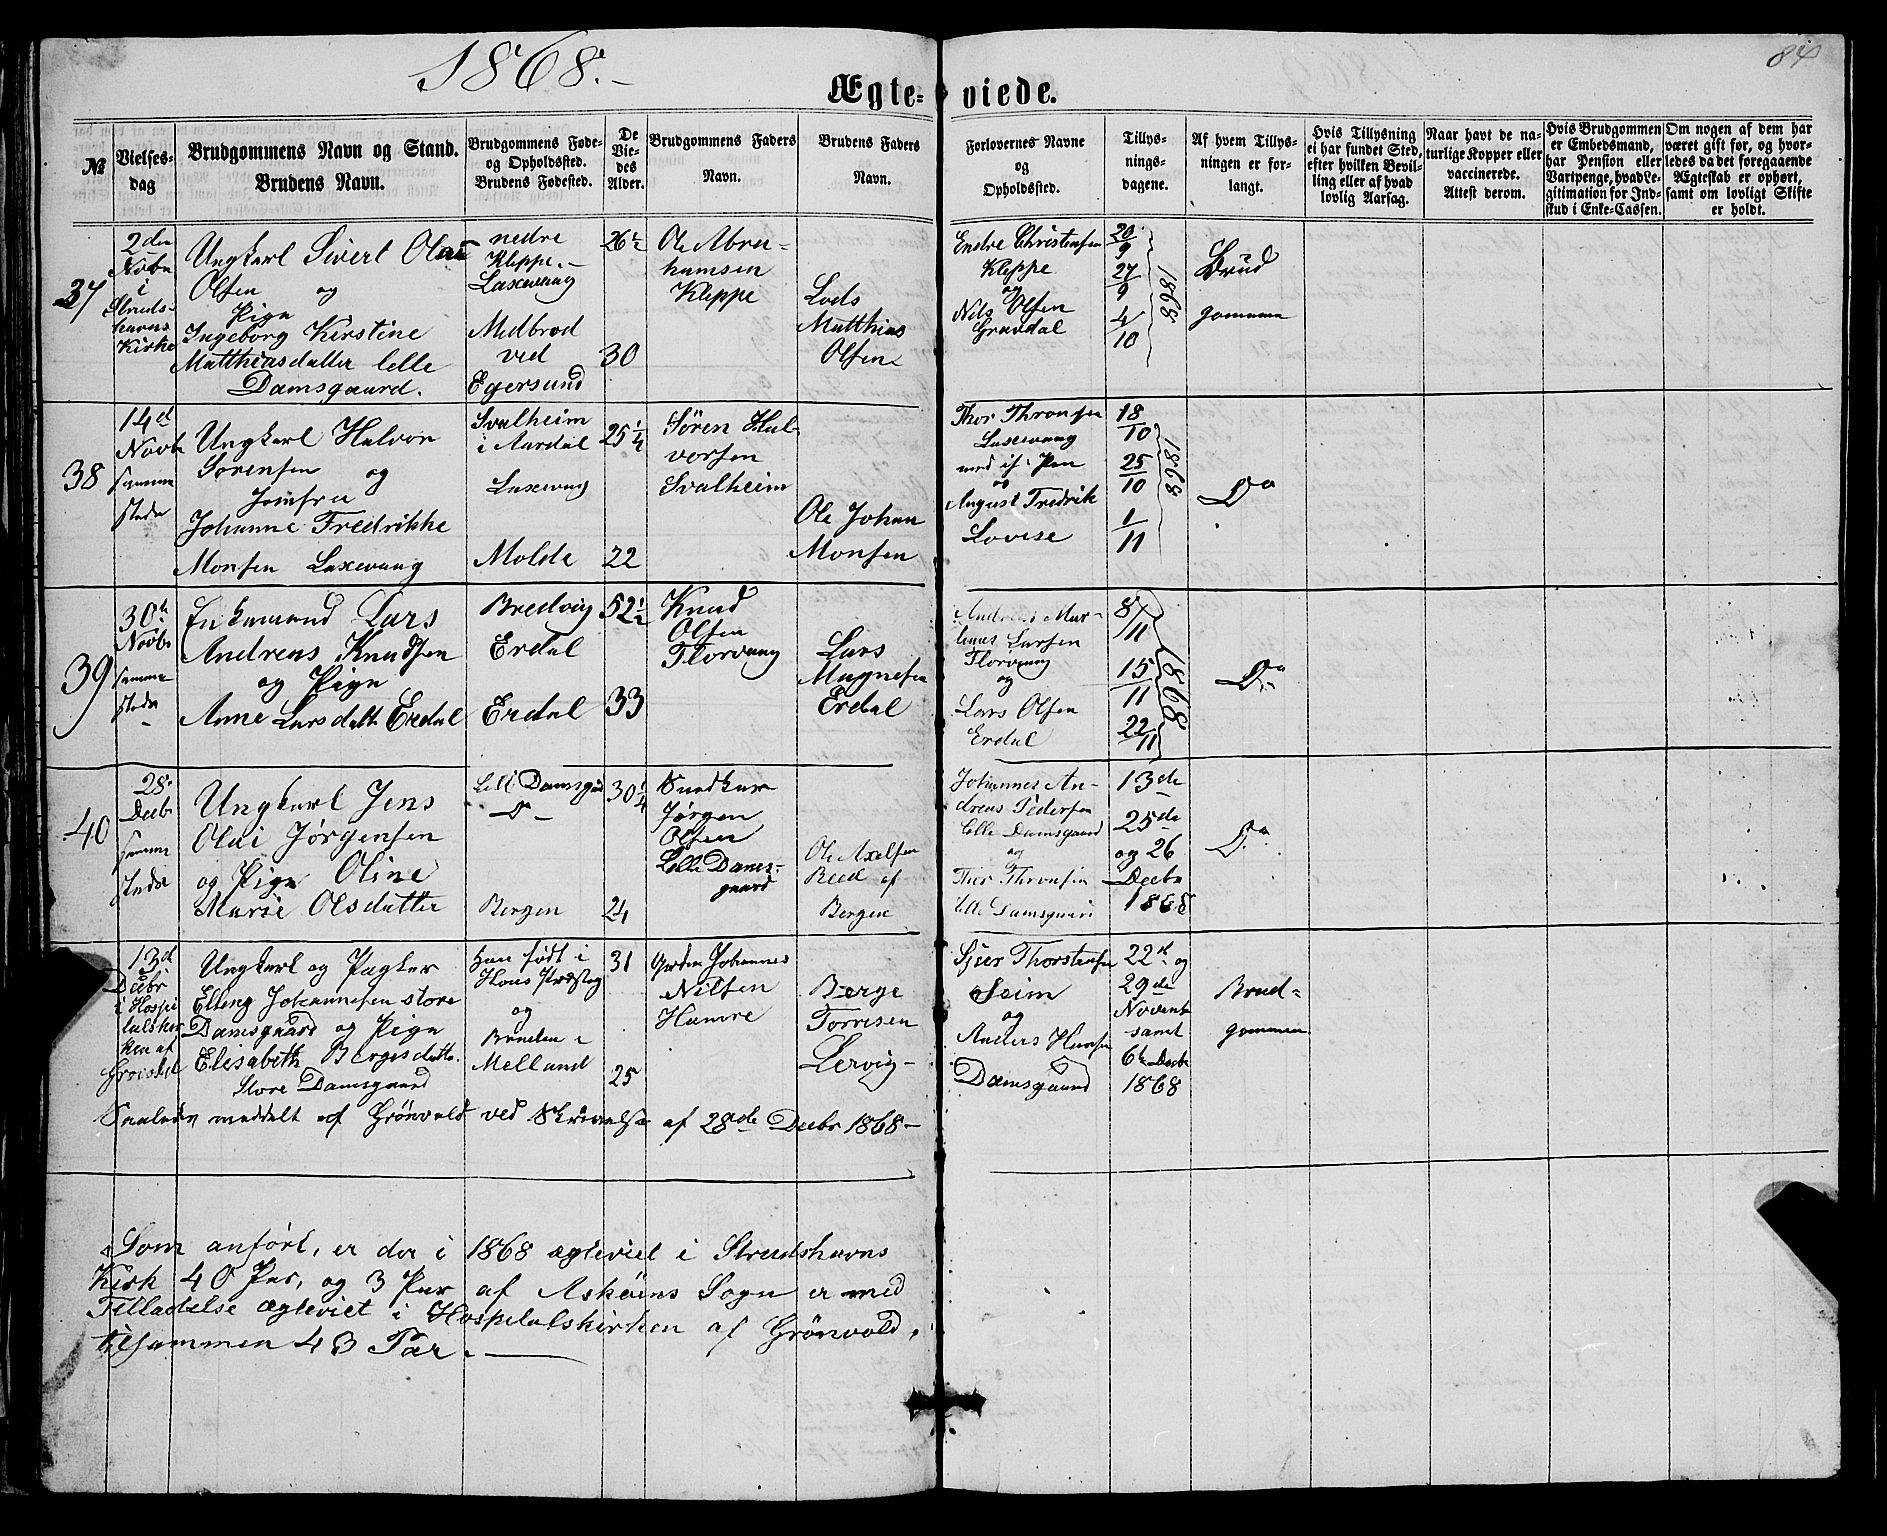 1868.-
84
Ægte- viede.
№
Vielses-
dag
Brudgommens Navn og Stand.
Brudens Navn.
Brudgommens Føde-
og Opholdssted.
Brudens Fødested.
De
Vie-
des
Alder.
Brudgommens Faders
Navn.
Brudens Faders
Navn.
Forlovernes Navne
og
Opholdssted.
Tillys-
nings-
dagene.
Af hvem Tillys-
ningen er for-
langt.
Hvis Tillysning
ei har fundet Sted,
efter hvilken Bevil-
ling eller af hvad
lovlig Aarsag.
Naar havt de na-
turlige Kopper eller
vaccinerede.
Attest derom.
Hvis Brudgommen
er Embedsmand,
har Pension eller
Vartpenge, hvad Le-
gitimation for Ind-
skud i Enke-Cassen.
Om nogen af dem har
været gift før, og hvor-
ledes da det foregaaende
Ægteskab er ophørt,
samt om lovligt Skifte
er holdt.
37
2den
Novbr
i
Struds-
havns
Kirke
Ungkarl Sivert Olai
Olsen og
Pige
Ingeborg Kirstine
Matthiasdatter lille
Damsgaard.
nedre
Kleppe.-
Laxevaag
Midbrød
ved
Egersund
26½
30
Ole Abra-
hamsen
Kleppe
Lods
Matthias
Olsen
Endre Christensen
Kleppe
og
Nils Olsen
Gravdal
20/9
27/9
4/10
1868
Brud
gommen
38
14d
Novb
samme
steds
Ungkarl Halvor
Sørensen og
Jomfru
Johanne Fredrikke
Monsen Laxevaag
Svalheim
i Aardal
Laxevaag
Molde
25¼
22
Søren Hal-
vorsen
Svalheim
Ole Johan
Monsen
Thor Thronsen
Laxevaag
og
August Fredrik
Lovise
18/10
25/10
1/11
1868
Do
39
30te
Novbr
samme
steds
Enkemand Lars
Andreas Knudsen
og Pige
Anne Larsdatter Erdal
Bredvig
Erdal
Erdal
52½
33
Knud
Olsen
Florvaag
Lars
Magnesen
Erdal
Andreas Mar-
tinus Larsen
Florvaag
og
Lars Olsen
Erdal
8/11
15/11
22/11
1868
Do
40
28de
Decbr
samme
steds
Ungkarl Jens
Olai Jørgensen
og Pige Oline
Marie Olsdatter
Lille Damsgrd
Do
Bergen
30¼
24
Snedker
Jørgen
Olsen
Lille Dams-
gaard
Ole Axelsen
Reed af
Bergen
Johannes An-
dreas Pedersen
Lille Damsgaard
og
Thor Thronsen
lille Damsgaard
13de
25de
og 26
Decbr
1868
Do
13d
Decbr
i Hospi
talskir
ken af
Grönvold
Ungkarl og Pagker
Elling Johannesen store
Damsgaard og Pige
Elisabeth Bergesdatter
Store Damsgaard
Han født i
Hous Præsteg
og
Bruden i
Melland
31
25
Johannes
Nilsen
Hamre
Berge
Torrisen
Lervig-
Sjur Thorstensen
Seim
og
Anders Hansen
Damsgaard
22d og
29de
Novemb
samt
6te Decbr
1868
Brud-
gommen
Saaledes meddelt af Grönvold ved Skrivelse af 28de Decbr 1868-
Som anført, er der i 1868 ægteviet i Strudshavns
Kirk 40 Par, og 3 Par af Askøens Sogn er med
Tilladelse ægteviet i Hospitalskirken af Grönvold,
tilsammen 43 Par.